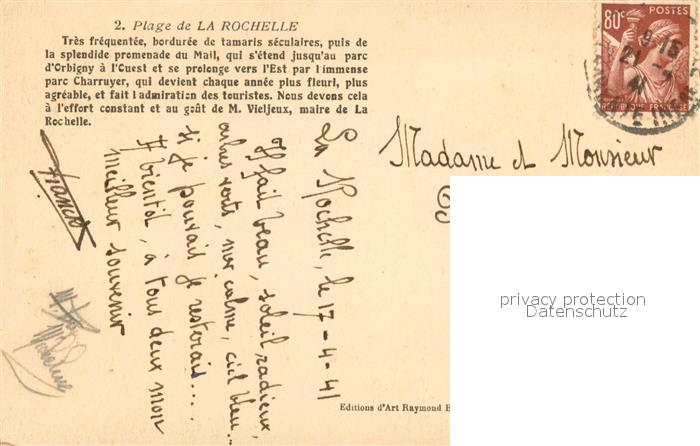 2. Plage de LA ROCHELLE
Très fréquentée, bordurée de tamaris séculaires, puis de
la splendide promenade du Mail, qui s'étend jusqu'au parc
d'Orbigny à l'Ouest et se prolonge vers l'Est par l'immense
parc Charruyer, qui devient chaque année plus fleuri, plus
agréable, et fait l'admiration des touristes. Nous devons cela
à l'effort constant et au goût de M. Vieljeux, maire de La
Rochelle.
La Rochelle, le 17-4-41
Il fait beau, soleil radieux,
arbres verts, mer calme, ciel bleu...
si je pouvais je resterais....
A bientôt, à tous deux mon
meilleur souvenir
Franck
Madame et Monsieur
80c POSTES
RÉPUBLIQUE FRANÇAISE
privacy protection
Datenschutz
Editions d'Art Raymond B